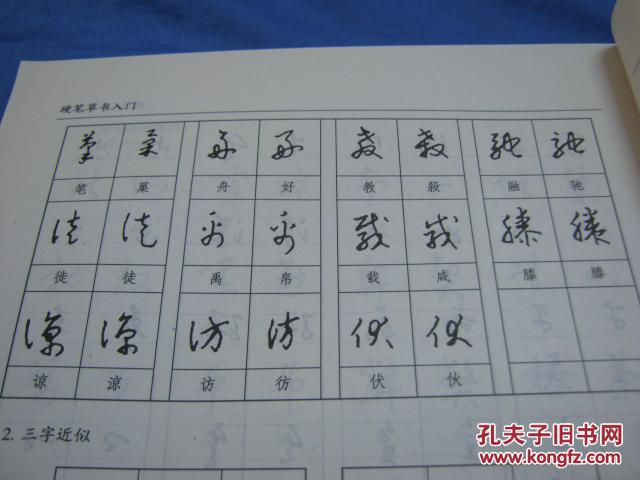 硬笔草书入门
笔 菓 舟 好 教 殺 融 驰
徙 徒 禹 帛 载 咸 膝
谅 凉 访 彷 伏 伙
2. 三字近似
孔夫子旧书网
www.kongfz.com